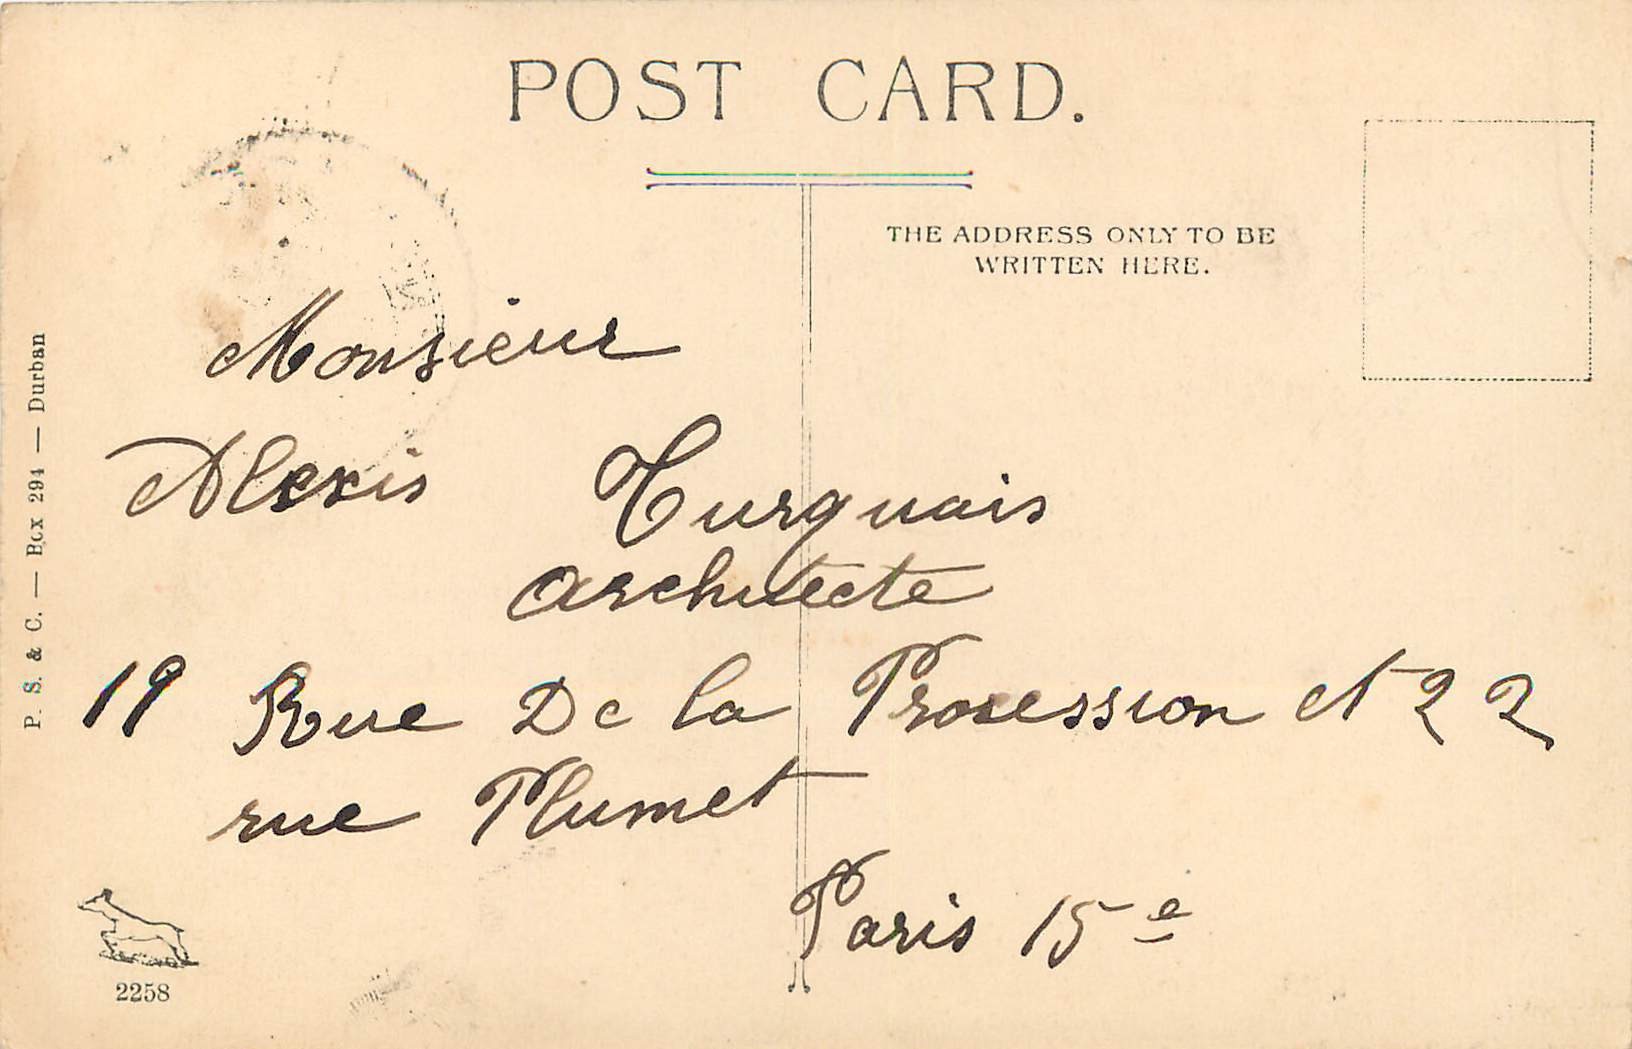 POST CARD.
THE ADDRESS ONLY TO BE
WRITTEN HERE.
P. S. & C. — Box 294 — Durban
Monsieur
Alexis Turquais
Architecte
19 Rue De la Procession et 22
rue Plumet
Paris 15e
2258